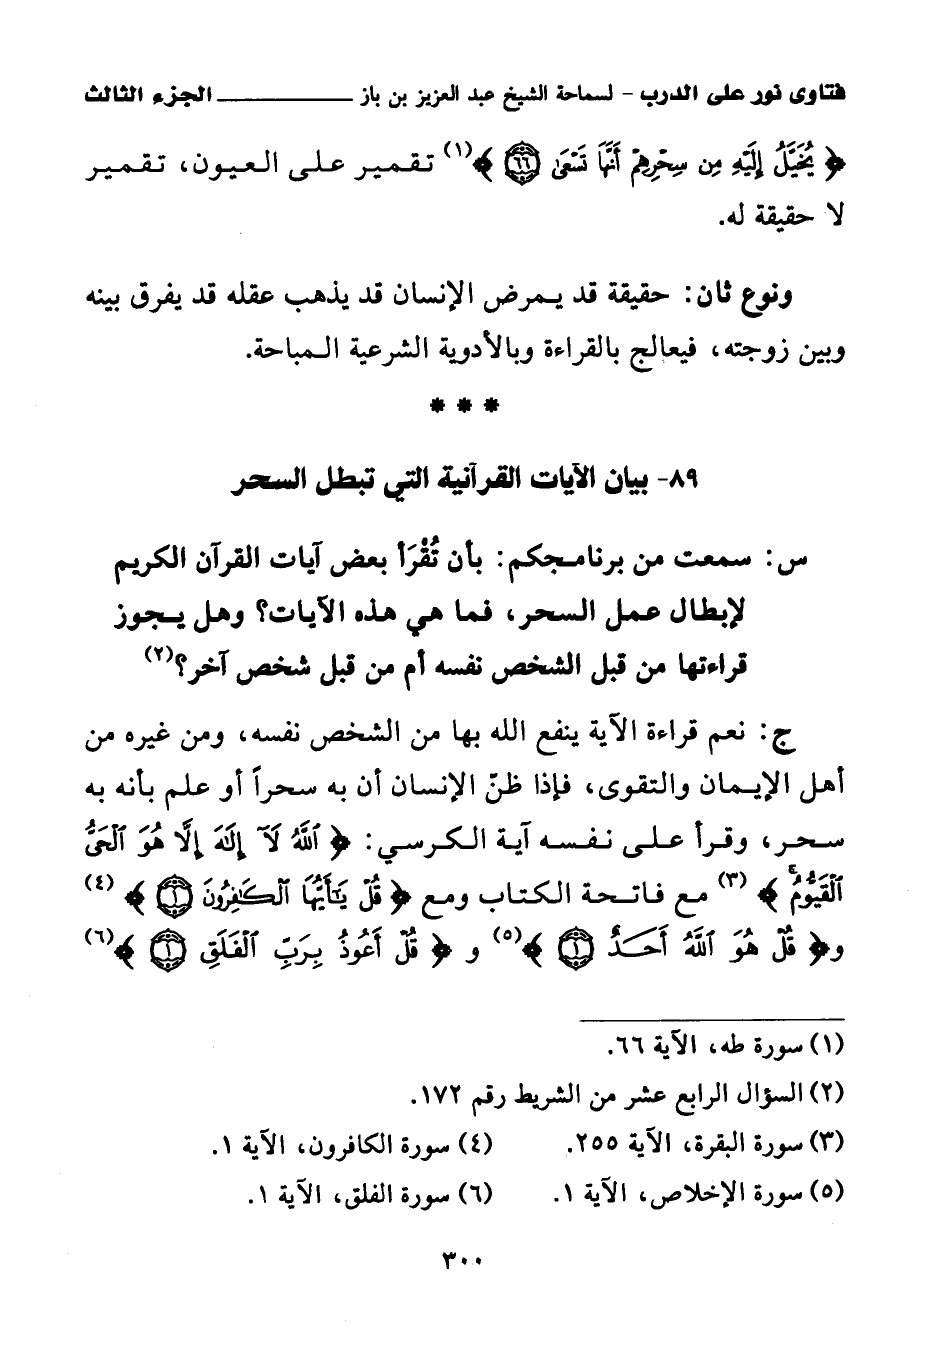 فتاوى نور على الدرب - لسماحة الشيخ عبد العزيز بن باز ــــــــــــــــ الجزء الثالث
﴿ يُخَيَّلُ إِلَيْهِ مِن سِحْرِهِمْ أَنَّهَا تَسْعَىٰ ٦٦ ﴾(١) تقمير على العيون، تقمير
لا حقيقة له.
ونوع ثان: حقيقة قد يمرض الإنسان قد يذهب عقله قد يفرق بينه
وبين زوجته، فيعالج بالقراءة وبالأدوية الشرعية المباحة.
* * *
٨٩- بيان الآيات القرآنية التي تبطل السحر
س: سمعت من برنامجكم: بأن تُقْرَأ بعض آيات القرآن الكريم
لإبطال عمل السحر، فما هي هذه الآيات؟ وهل يجوز
قراءتها من قبل الشخص نفسه أم من قبل شخص آخر؟(٢)
ج: نعم قراءة الآية ينفع الله بها من الشخص نفسه، ومن غيره من
أهل الإيمان والتقوى، فإذا ظنّ الإنسان أن به سحراً أو علم بأنه به
سحر، وقرأ على نفسه آية الكرسي: ﴿ ٱللَّهُ لَآ إِلَٰهَ إِلَّا هُوَ ٱلْحَىُّ
ٱلْقَيُّومُ ۚ ﴾ (٣) مع فاتحة الكتاب ومع ﴿ قُلْ يَٰٓأَيُّهَا ٱلْكَٰفِرُونَ ١ ﴾ (٤)
و﴿ قُلْ هُوَ ٱللَّهُ أَحَدٌ ١ ﴾(٥) و ﴿ قُلْ أَعُوذُ بِرَبِّ ٱلْفَلَقِ ١ ﴾(٦)
(١) سورة طه، الآية ٦٦.
(٢) السؤال الرابع عشر من الشريط رقم ١٧٢.
(٣) سورة البقرة، الآية ٢٥٥. (٤) سورة الكافرون، الآية ١.
(٥) سورة الإخلاص، الآية ١. (٦) سورة الفلق، الآية ١.
٣٠٠